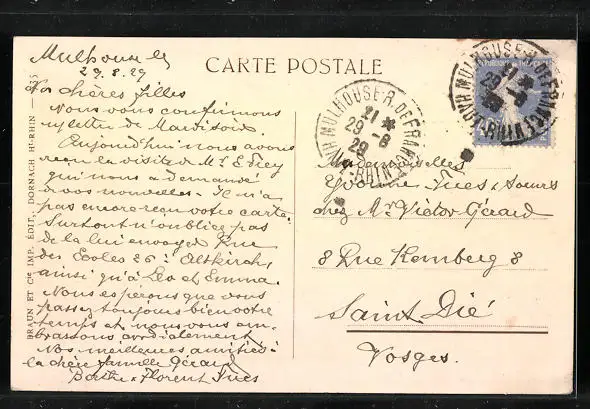 CARTE POSTALE
Mulhouse le
29.8.29
Nos chères filles
Nous vous confirmons
n/ lettre de Mardi soir.
Aujourd'hui nous avons
reçu la visite de Mr E. Frey
qui nous a demandé
de vos nouvelles. Il n'a
pas encore reçu votre carte.
Surtout n'oubliez pas
de la lui envoyer Rue
des Ecoles 26: Altkirch,
ainsi qu'à Leo et Emma.
Nous espérons que vous
passez toujours bien votre
temps et nous vous em-
brassons cordialement
Nos meilleures amitiés à
la chère famille Gérard
Berthe & Florent Yves
BRAUN ET Cie IMP. ÉDIT., DORNACH Ht-RHIN
MULHOUSE R. DE FRANCE
21
29-8
29
HT-RHIN
MULHOUSE R. DE FRANCE
21
29-8
HAUT-RHIN
Mesdemoiselles
Yvonne Yves & sœurs
chez Mr Victor Gérard
8 Rue Kemberg 8
Saint Dié
Vosges.